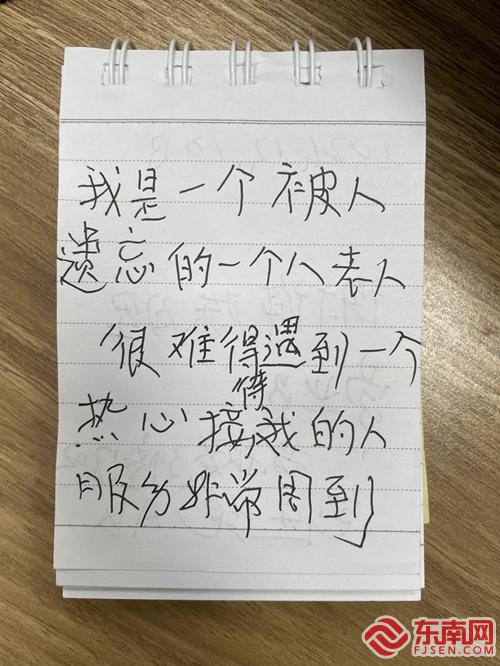 我是一个被人
遗忘的一个人老人
很难得遇到一个
热心接待我的人
服务非常周到
东南网
FJSEN.COM